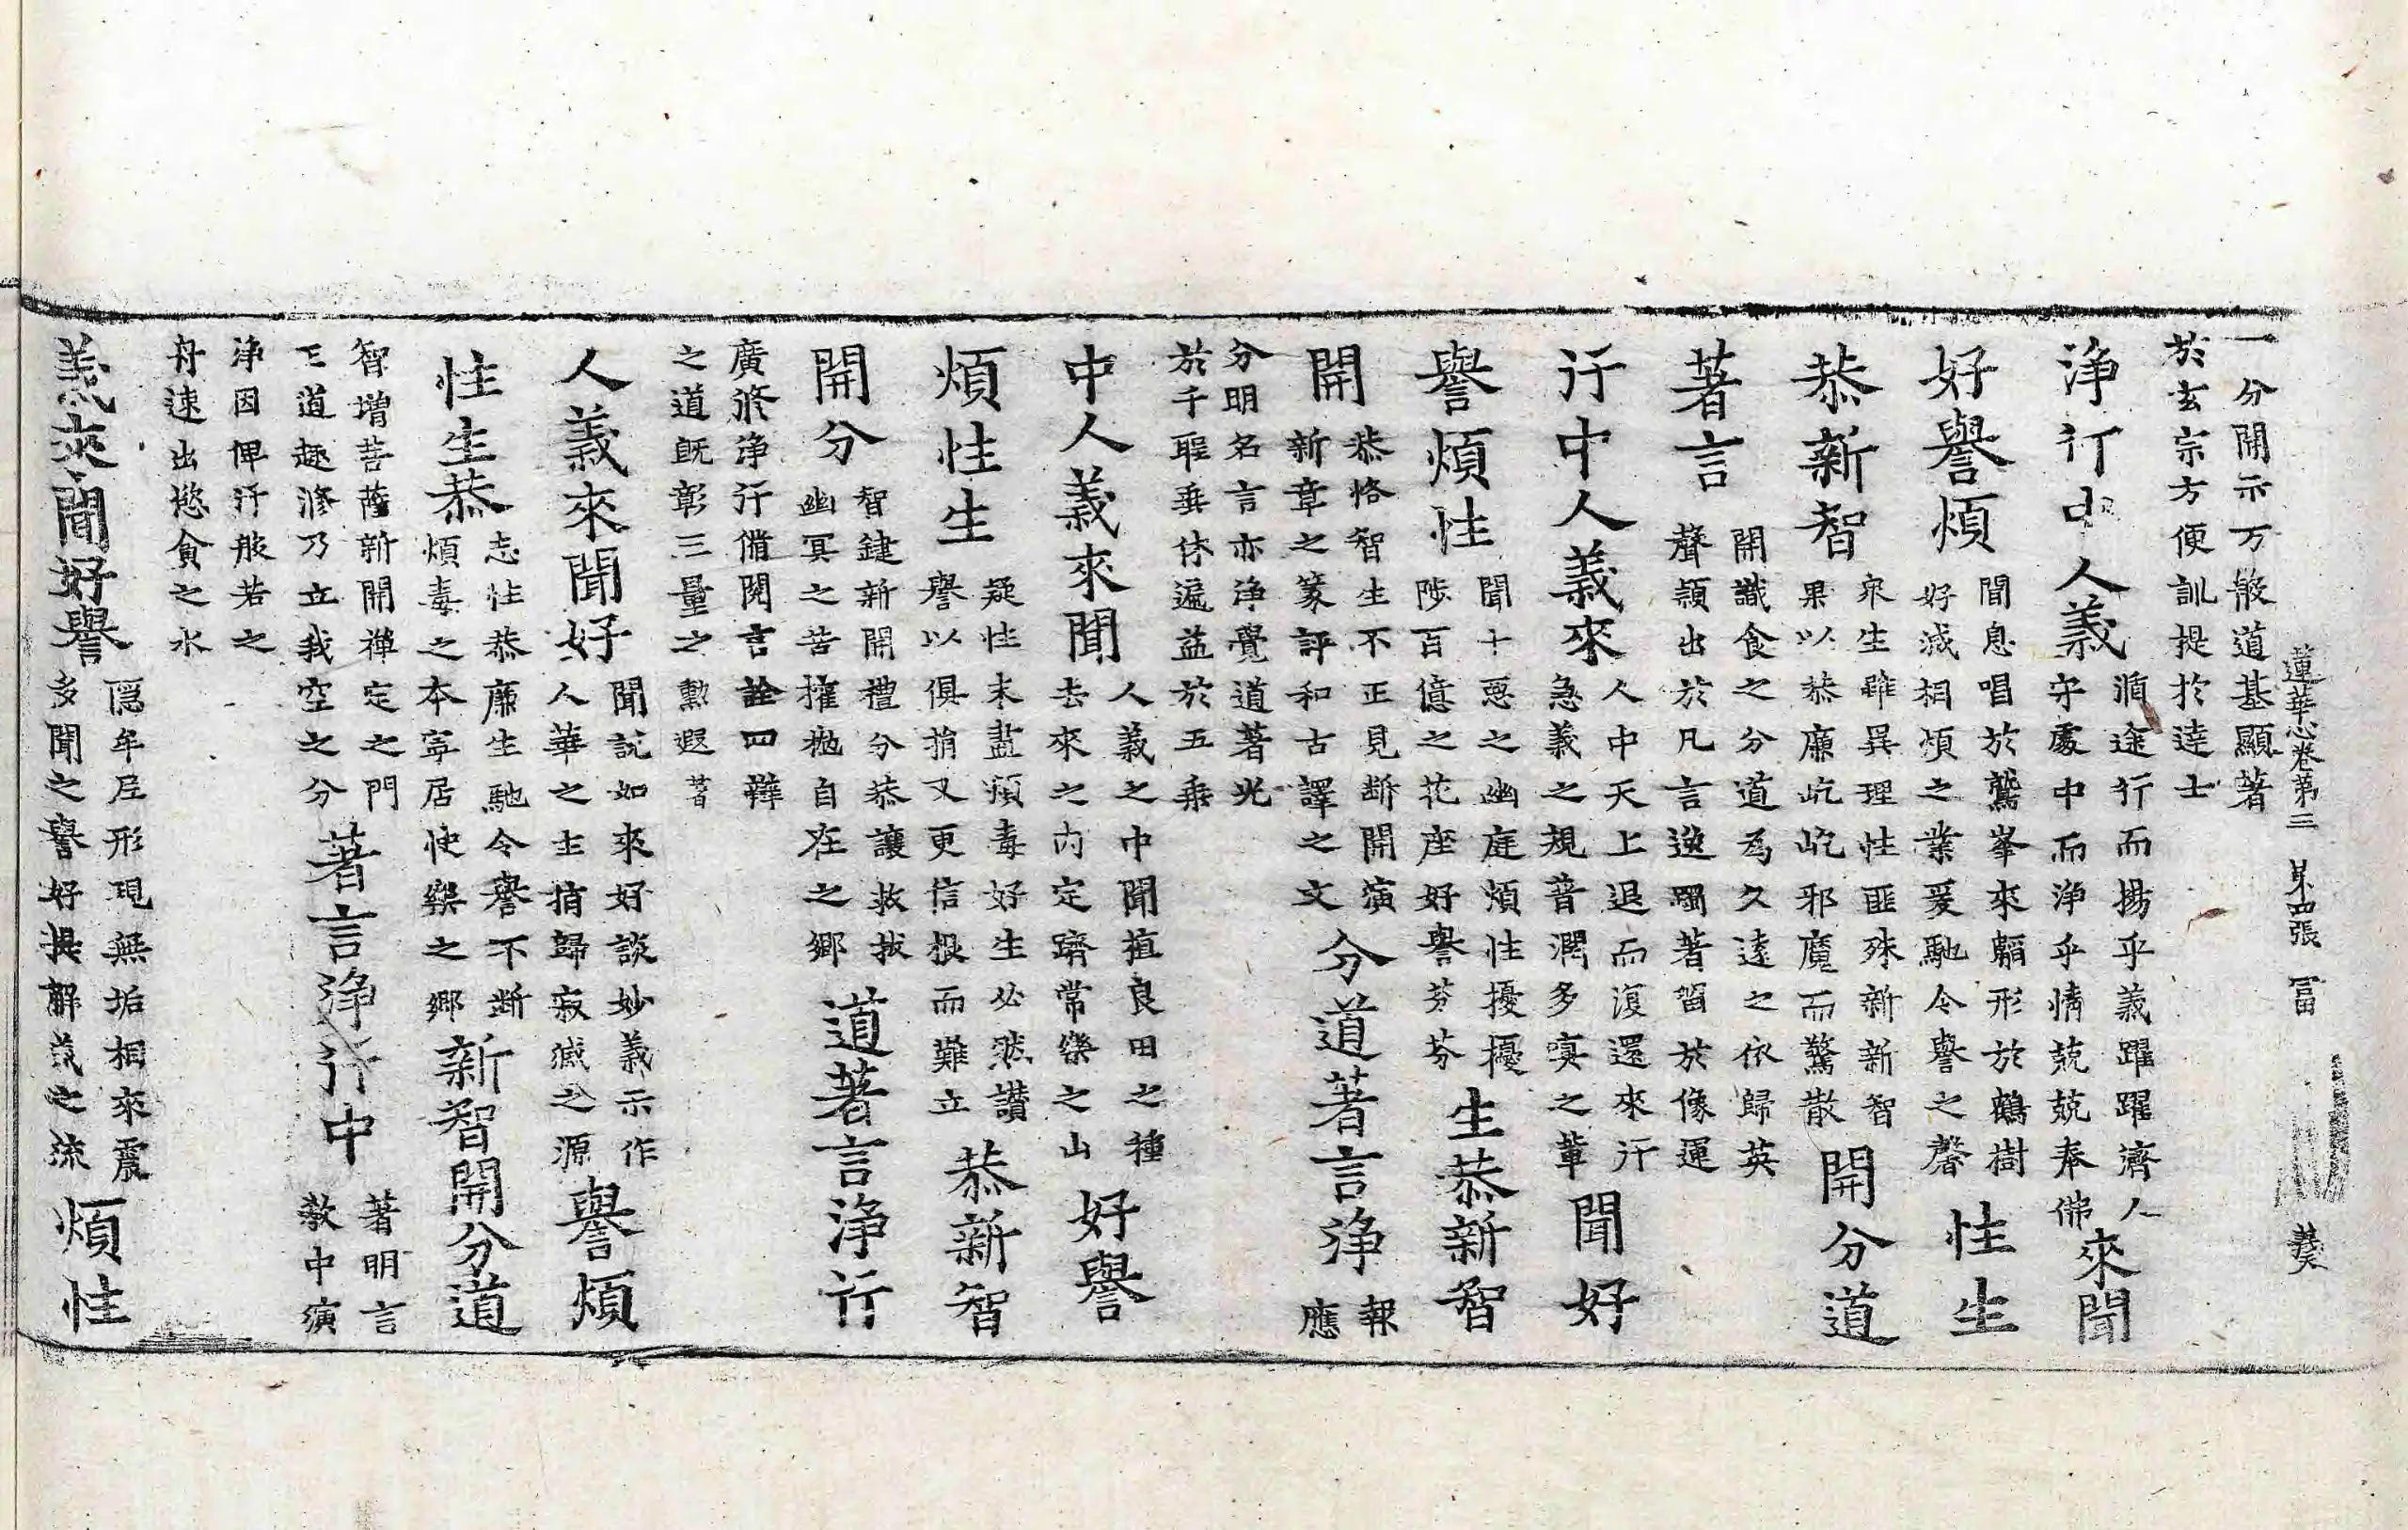 蓮華心卷第三 第四張 冨 㷼
一分開示万般道基顯著
於玄宗方便訓提於達士
淨行中人義
循途行而揚乎義躍躍濟人
守處中而淨乎情兢兢奉佛
來聞
好譽煩
聞息唱於鷲峯來韜形於鶴樹
好滅相煩之業爰馳令譽之馨
性生
恭新智
衆生雖異理性匪殊新新智
果以恭廉屹屹邪魔而驚散
開分道
著言
開識食之分道爲久遠之依歸英
聲穎出於凡言逸躅著留於像運
行中人義來
人中天上退而復還來行
急義之規普潤多嗔之輩
聞好
譽煩性
聞十惡之幽庭煩性擾擾
陟百億之花座好譽芬芬
生恭新智
開
恭恪智生不正見斷開演
新章之篆評和古譯之文
分道著言淨
報
應
分明名言亦淨覺道著光
於千聖垂休遍益於五乘
中人義來聞
人義之中聞植良田之種
去來之內定躋常樂之山
好譽
煩性生
疑性未盡煩毒好生必然讃
譽以俱捐又更信根而難立
恭新智
開分
智鍵新開禮分恭讓救拔
幽冥之苦擢抛自在之鄉
道著言淨行
廣修淨行備閱言詮四辯
之道旣彰三量之勲遐著
人義來聞好
聞說如來好談妙義示作
人華之主捐歸寂滅之源
譽煩
性生恭
志性恭廉生馳令譽不斷
煩毒之本寧居快樂之鄉
新智開分道
智增菩薩新開禪定之門
三道趣修乃立我空之分
著言淨行中
著明言
敎中演
淨因俾行般若之
舟速出慾貪之水
義來聞好譽
隱年尼形現無垢相來震
多聞之譽好提解義之流
煩性